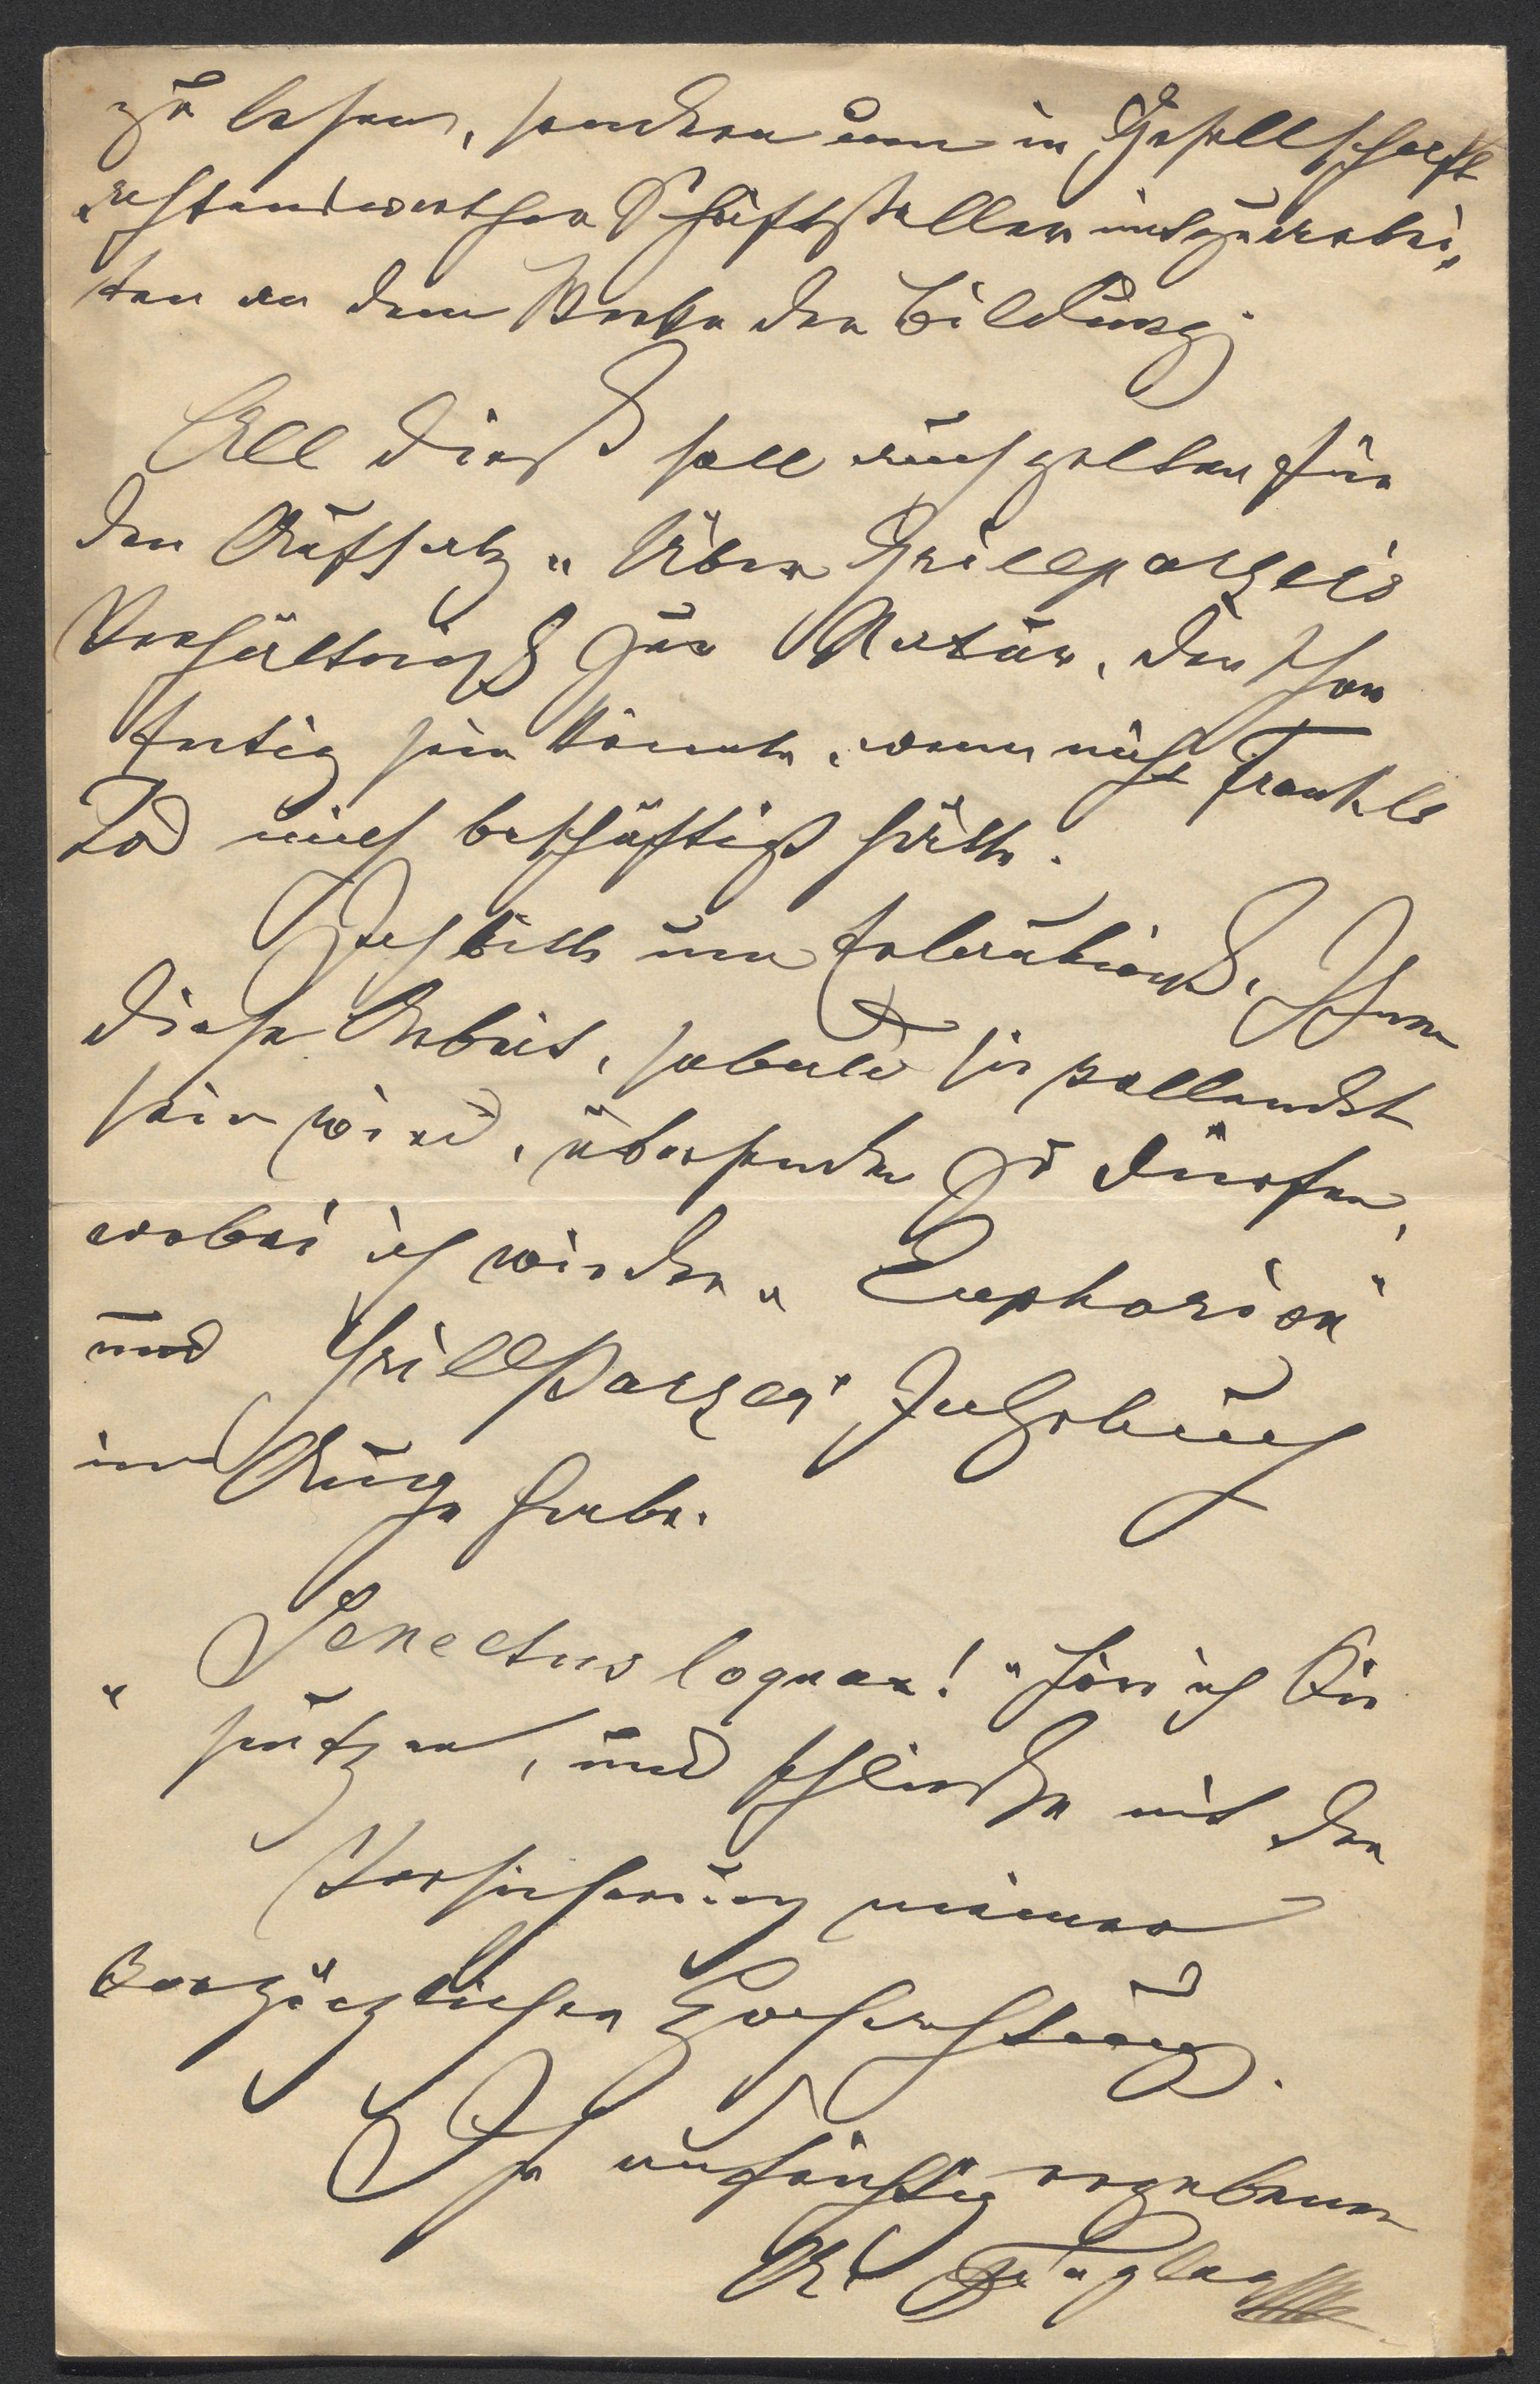 zu lesen, sondern um in Gesellschaft
achtenswerther Schriftsteller mitzuarbei-
ten an dem Werke der Bildung.
All dieß soll auch gelten für
den Aufsatz „Über Grillparzers
Verhältniß zur Natur, der schon
fertig sein könnte, wenn nicht Frankls
Tod mich beschäftigt hätte.
Ich bitte um Erlaubniß, Ihnen
diese Arbeit, sobald sie vollendet
sein wird, übersenden zu dürfen,
wobei ich wieder „Euphorion"
und Grillparzer Jahrbuch
im Auge habe.
„Senectus loquax!" hör' ich Sie
seufzen, und schließe mit der
Versicherung meiner
vorzüglichen Hochachtung.
Ihr aufrichtig ergebener